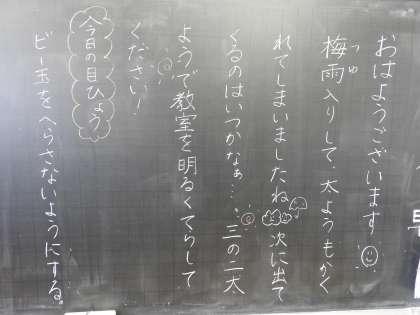 おはようございます
梅雨入りして、太ようもかく
つゆ
れてしまいましたね 次に出て
くるのはいつかなぁ…、三の二太
ようで教室を明るくてらして
ください!
今日の目ひょう
ビー玉をへらさないようにする。